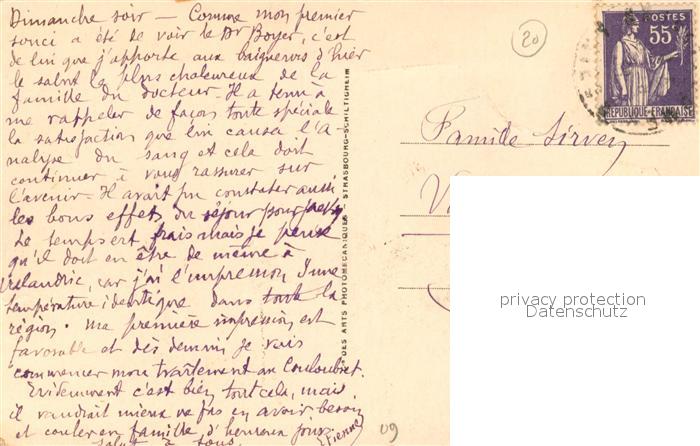 Dimanche soir — Comme mon premier
souci a été de voir le Dr Boyer, c'est
de lui que j'apporte aux baigneurs d'hier
le salut le plus chaleureux de la
famille du docteur. Il a tenu à
me rappeler de façon toute spéciale
la satisfaction que lui causa l'a-
nalyse du sang et cela doit
continuer à vous rassurer sur
l'avenir. Il avait pu constater aussi
les bons effets du séjour pour
Le temps est frais mais je pense
qu'il doit en être de même à
car j'ai l'impression d'une
température identique dans toute la
région. Ma première impression est
favorable et dès demain je vais
commencer mon traitement au Couloubret.
Evidemment c'est bien tout cela, mais
il vaudrait mieux ne pas en avoir besoin
et couler en famille, d'heureux jours.
Salut à tous. Etienne
DES ARTS PHOTOMECANIQUES - STRASBOURG-SCHILTIGHEIM
20
POSTES
55c
REPUBLIQUE FRANÇAISE
Famille Sirven
privacy protection
Datenschutz
09